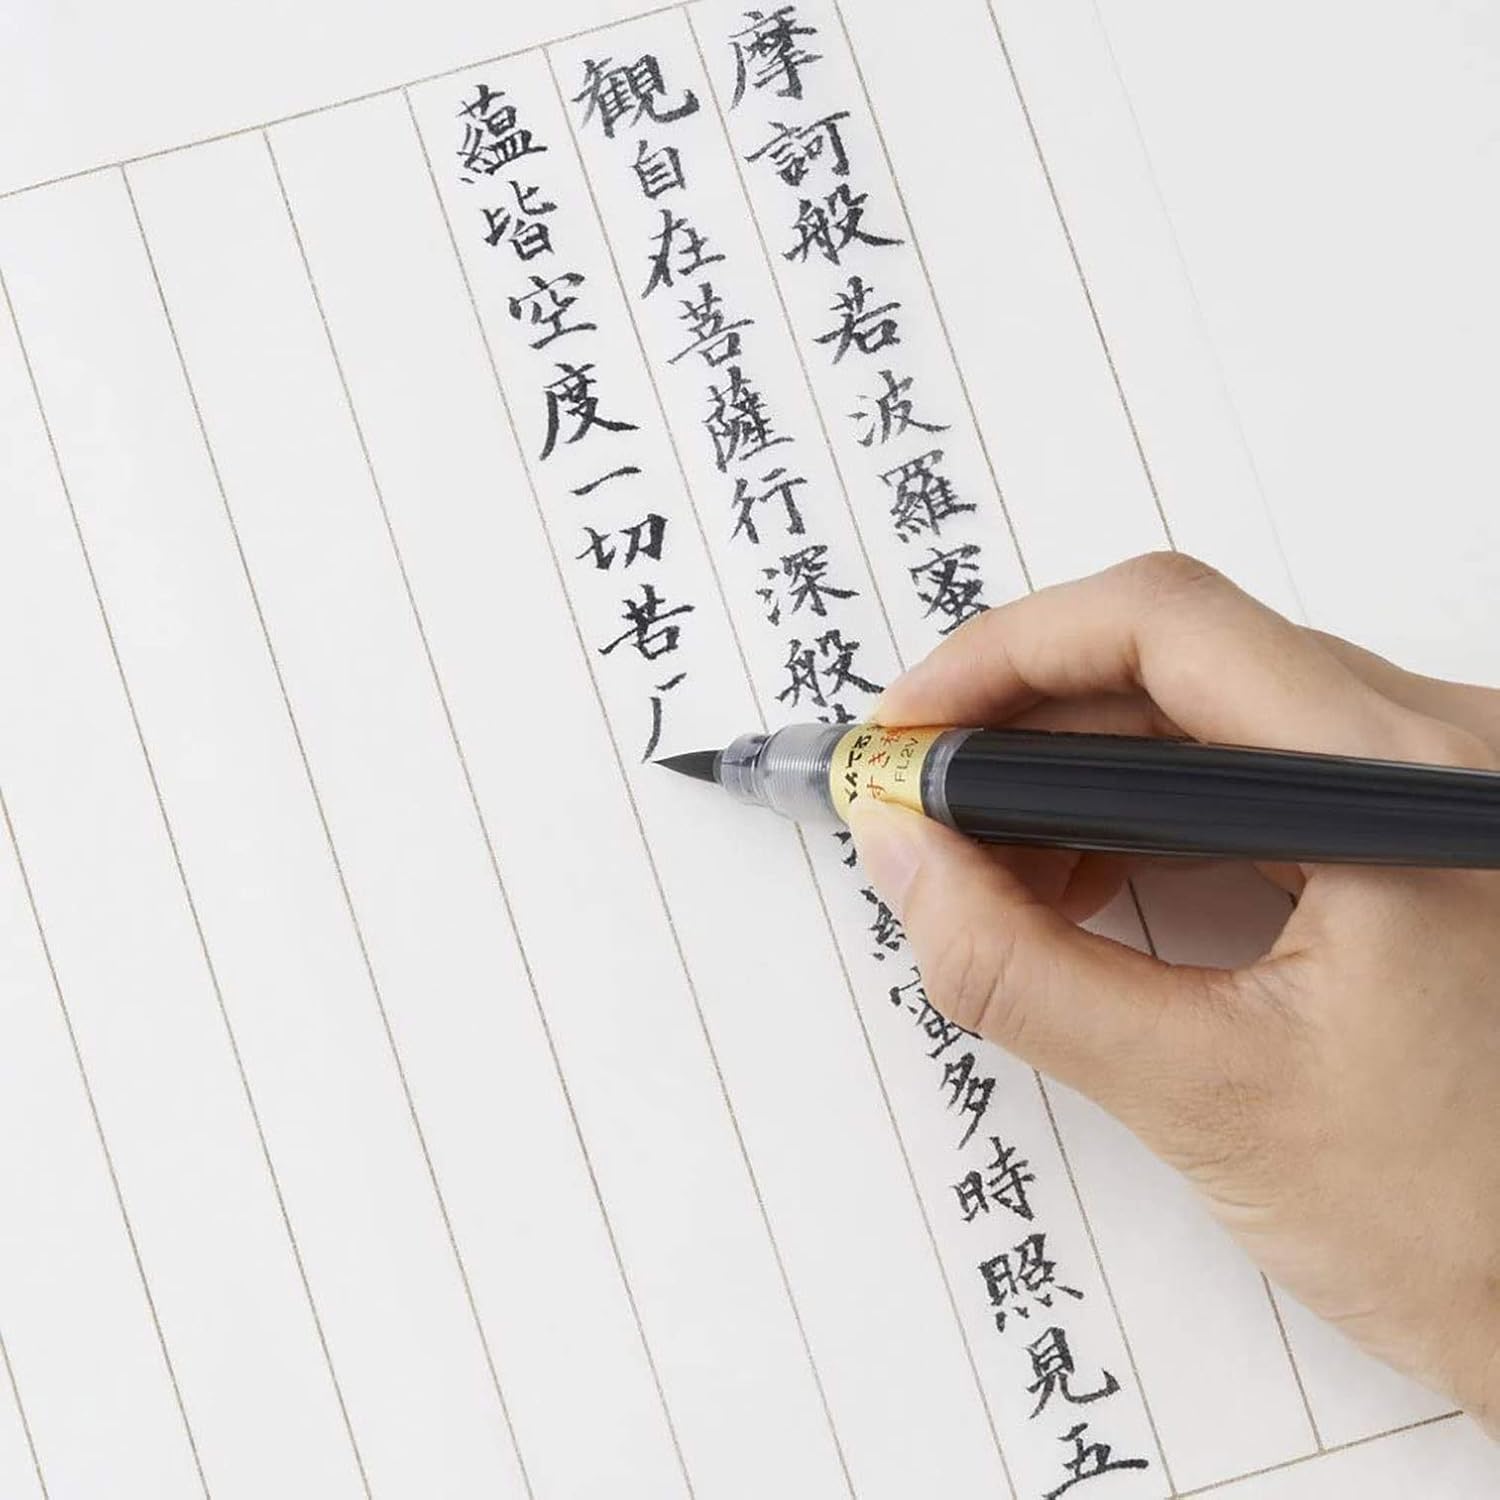 摩訶般若波羅蜜
観自在菩薩行深般 羅蜜多時照見五
蘊皆空度一切苦厂
すき穂
FL2V